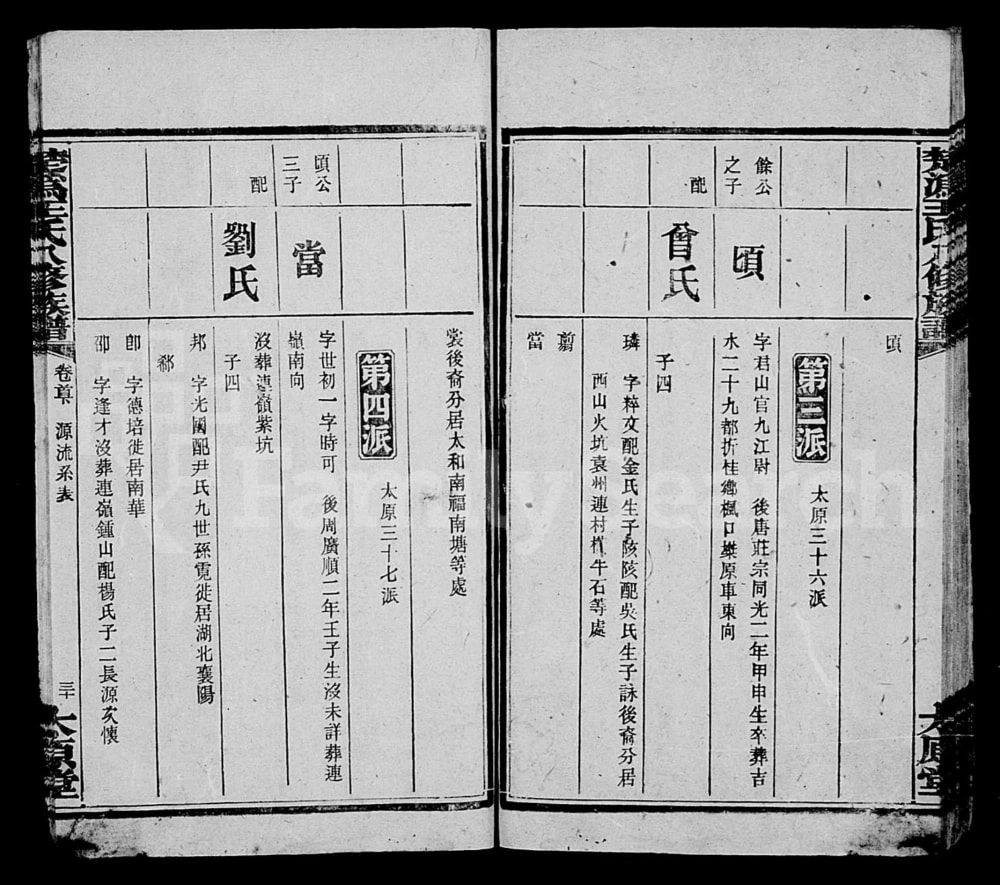 頊
第三派
太原三十六派
餘公
之子
頊
字君山官九江尉 後唐莊宗同光二年甲申生卒葬吉
水二十九都折桂鄉楓口欒原車東向
配
曾氏
子四
璘 字粹文配金氏生子陔陔配吳氏生子詠後裔分居
西山火坑袁州連村橫牛石等處
翦
當
裳後裔分居太和南福南塘等處
第四派
太原三十七派
頊公
三子
當
字世初一字時可 後周廣順二年壬子生沒未詳葬連
嶺南向
配
劉氏
沒葬連嶺紫坑
子四
邦 字光國配尹氏九世孫霓徙居湖北襄陽
郗
卽 字德培徙居南華
邵 字逢才沒葬連嶺鍾山配楊氏子二長源次懷
王氏八修族譜
卷首下 源流系表
三十
太原堂
王氏八修族譜
太原堂
FamilySearch